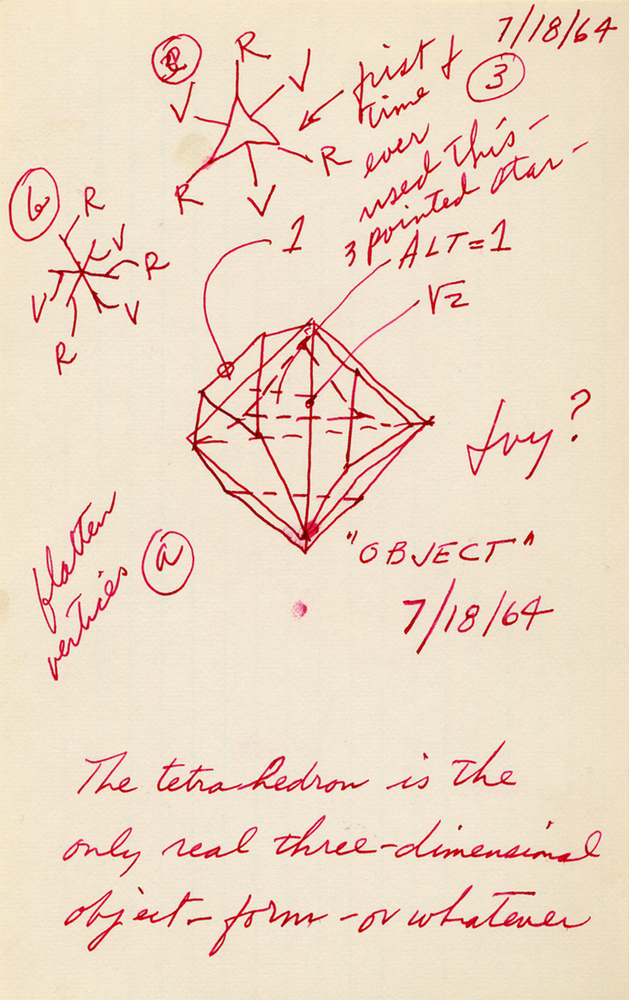 7/18/64
R
V
V
R
R
V
first
time
3
ever
used this -
3 pointed star -
6
R
V
R
V
V
R
1
ALT = 1
√2
Ivy?
flatten
vertices
a
"OBJECT"
7/18/64
The tetrahedron is the
only real three-dimensional
object - form - or whatever